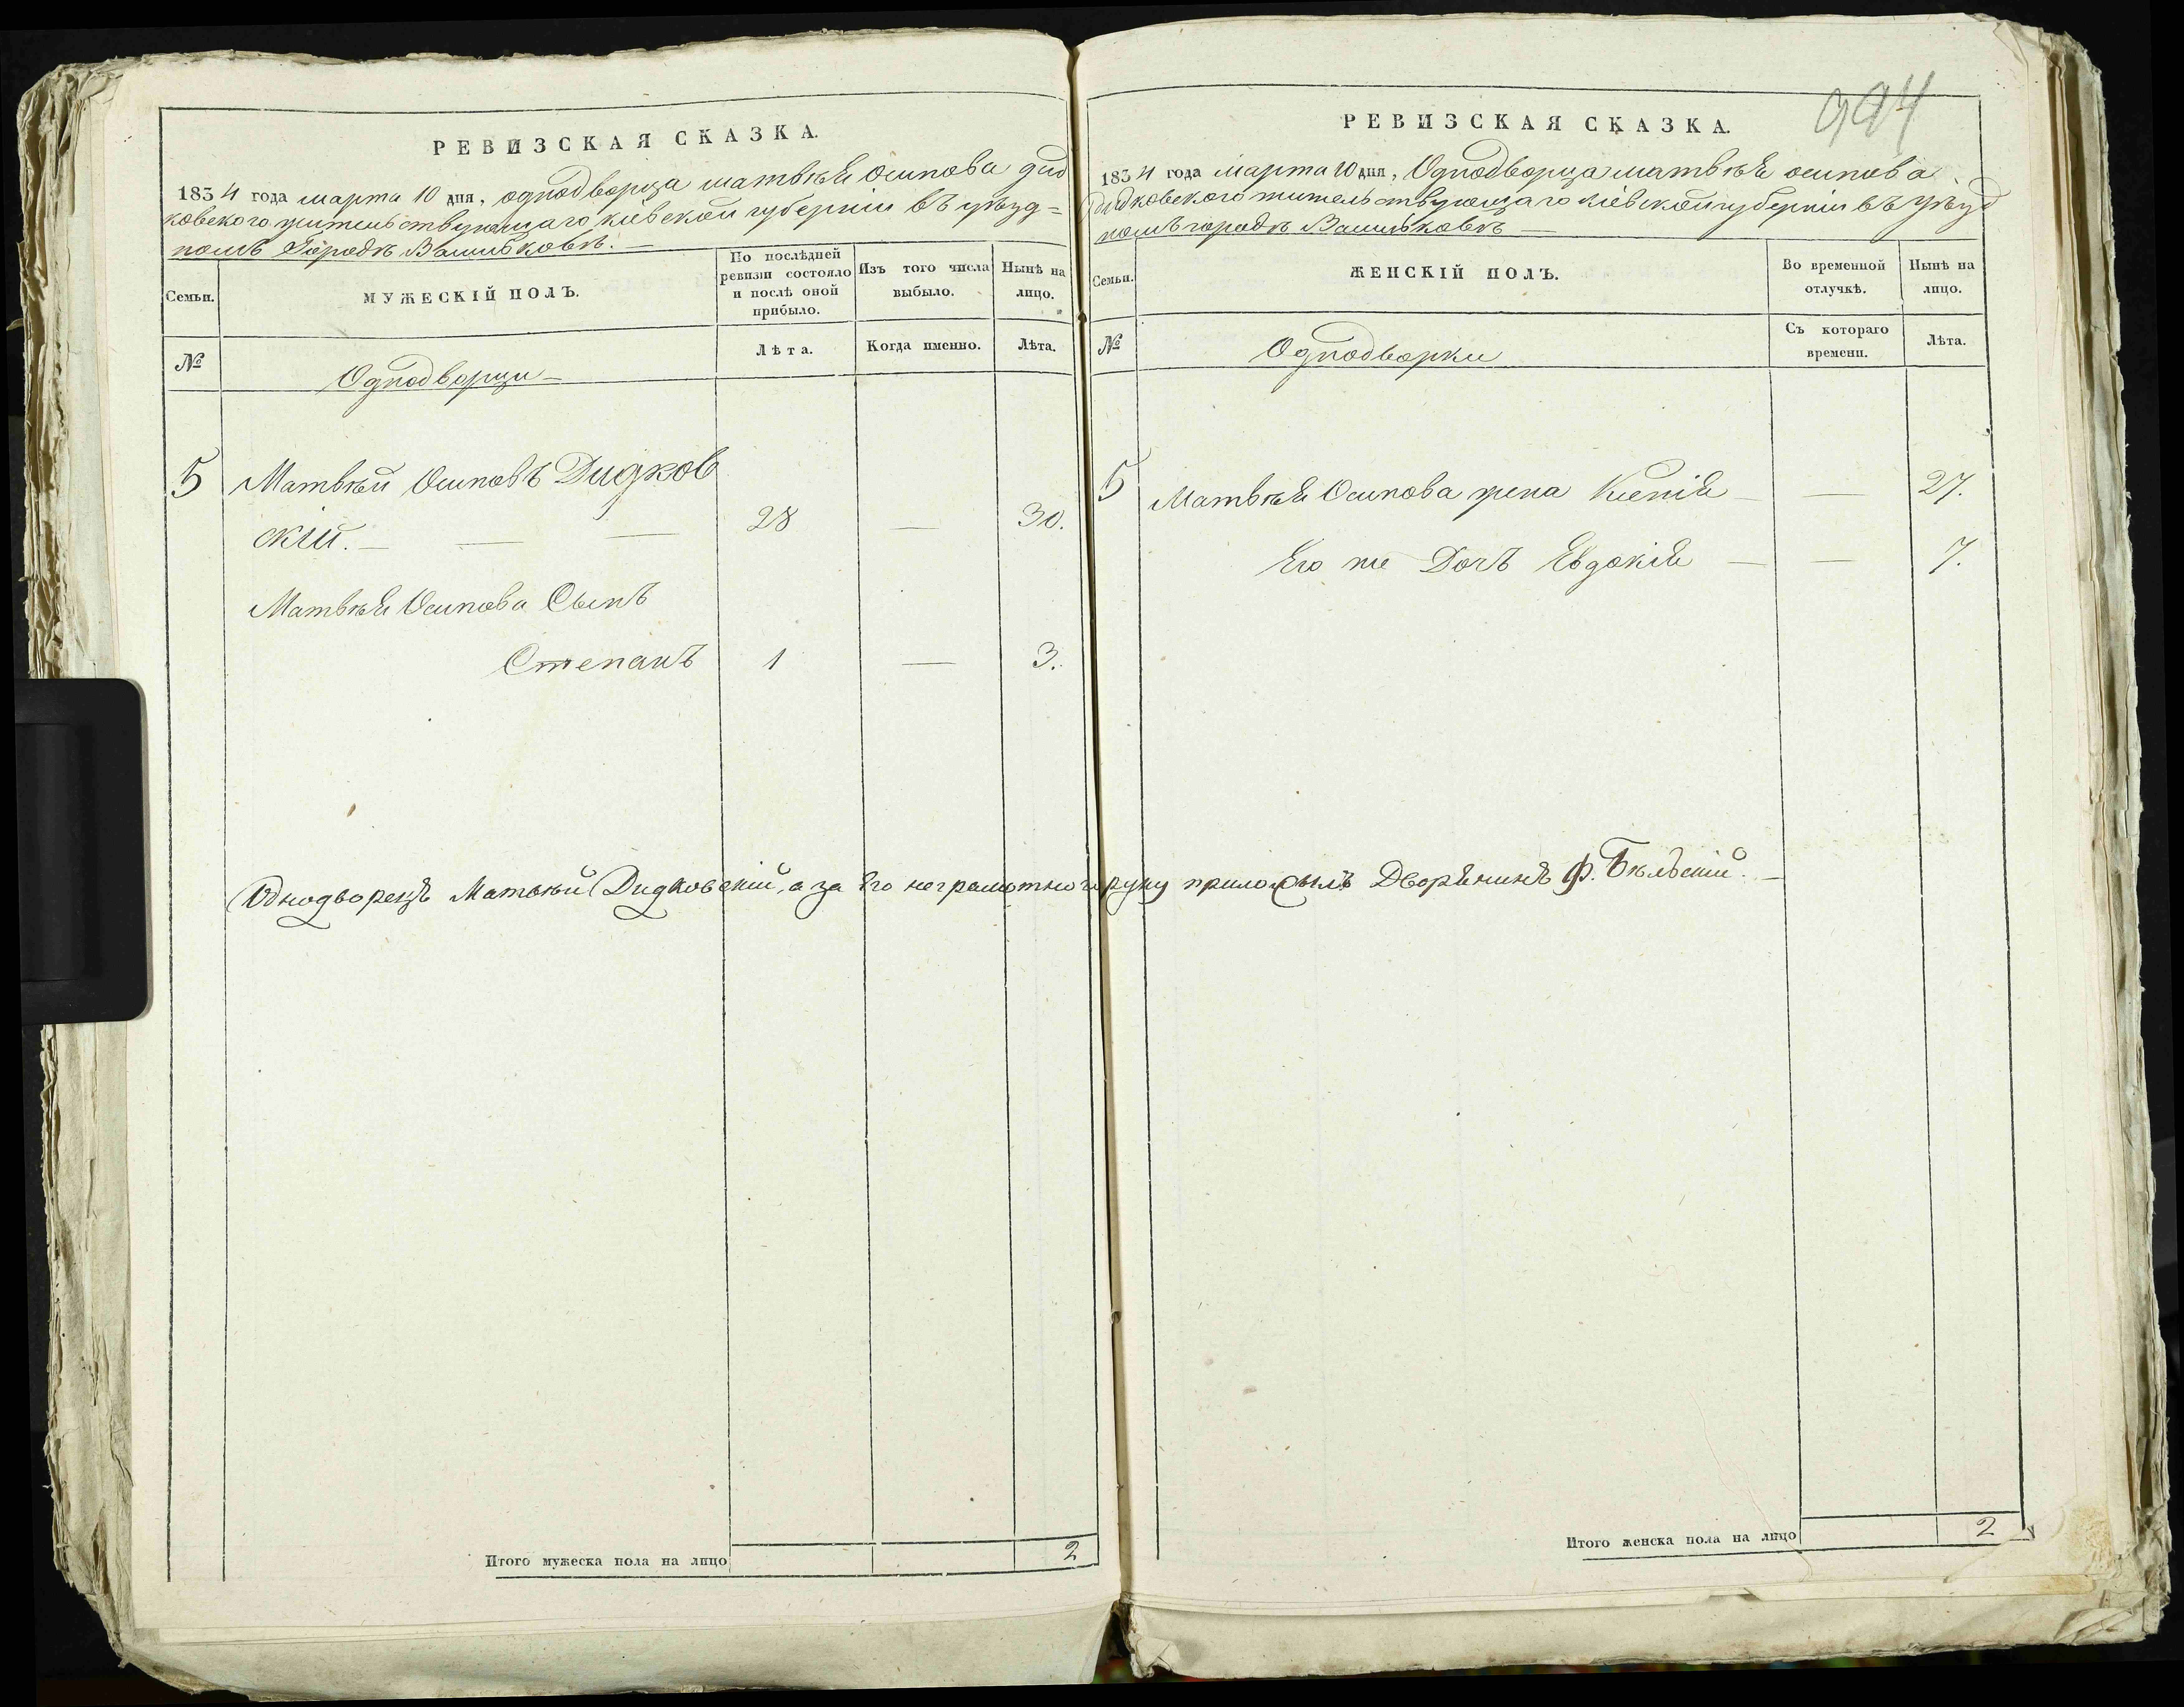 РЕВИЗСКАЯ СКАЗКА.
1834 года марта 10 дня, однодворца матвѣя осипова дид
ковского жительствующаго кіевской губерніи въ уѣзд=
номъ Городѣ Васильковѣ.—
Семьи.
МУЖЕСКІЙ ПОЛЪ.
По послѣдней ревизіи состояло и послѣ оной прибыло.
Изъ того числа выбыло.
Нынѣ на лицо.
№
Однодворцы—
Лѣта.
Когда именно.
Лѣта.
5 Матвѣй Осиповъ Дидков
скій.— — — 28 — 30.
Матвѣя Осипова Сынъ
Степанъ 1 — 3.
Итого мужеска пола на лицо 2
994
РЕВИЗСКАЯ СКАЗКА.
1834 года марта 10 дня, Однодворца матвѣя осипова
Дидковского жительствующаго кіевской губерніи въ уѣзд
номъ городѣ Васильковѣ —
Семьи.
ЖЕНСКІЙ ПОЛЪ.
Во временной отлучкѣ.
Нынѣ на лицо.
№
Однодворки
Съ котораго времени.
Лѣта.
5 Матвѣя Осипова жена Ксенія — — 27.
Его же Дочъ Евдокія — — 7.
Однодворецъ Матвѣй Дидковскій, а за его неграмотного руку приложилъ Дворянинъ Ф. Бѣльскій.—
Итого женска пола на лицо 2